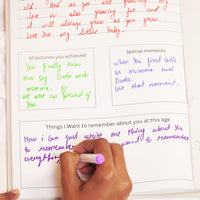 old. And as you are growing my
love is also growing for and
it will always grow as you grow.
Love you my little baby.
Milestones you achieved
You finally know
how say Dada and
momma.
we are so proud of
You.
Special moments
when you first calls
us momma and
Dada.
love that moment.
Things I Want to remember about you at this age
How i can just write one thing about you
to remember want to remember
everything